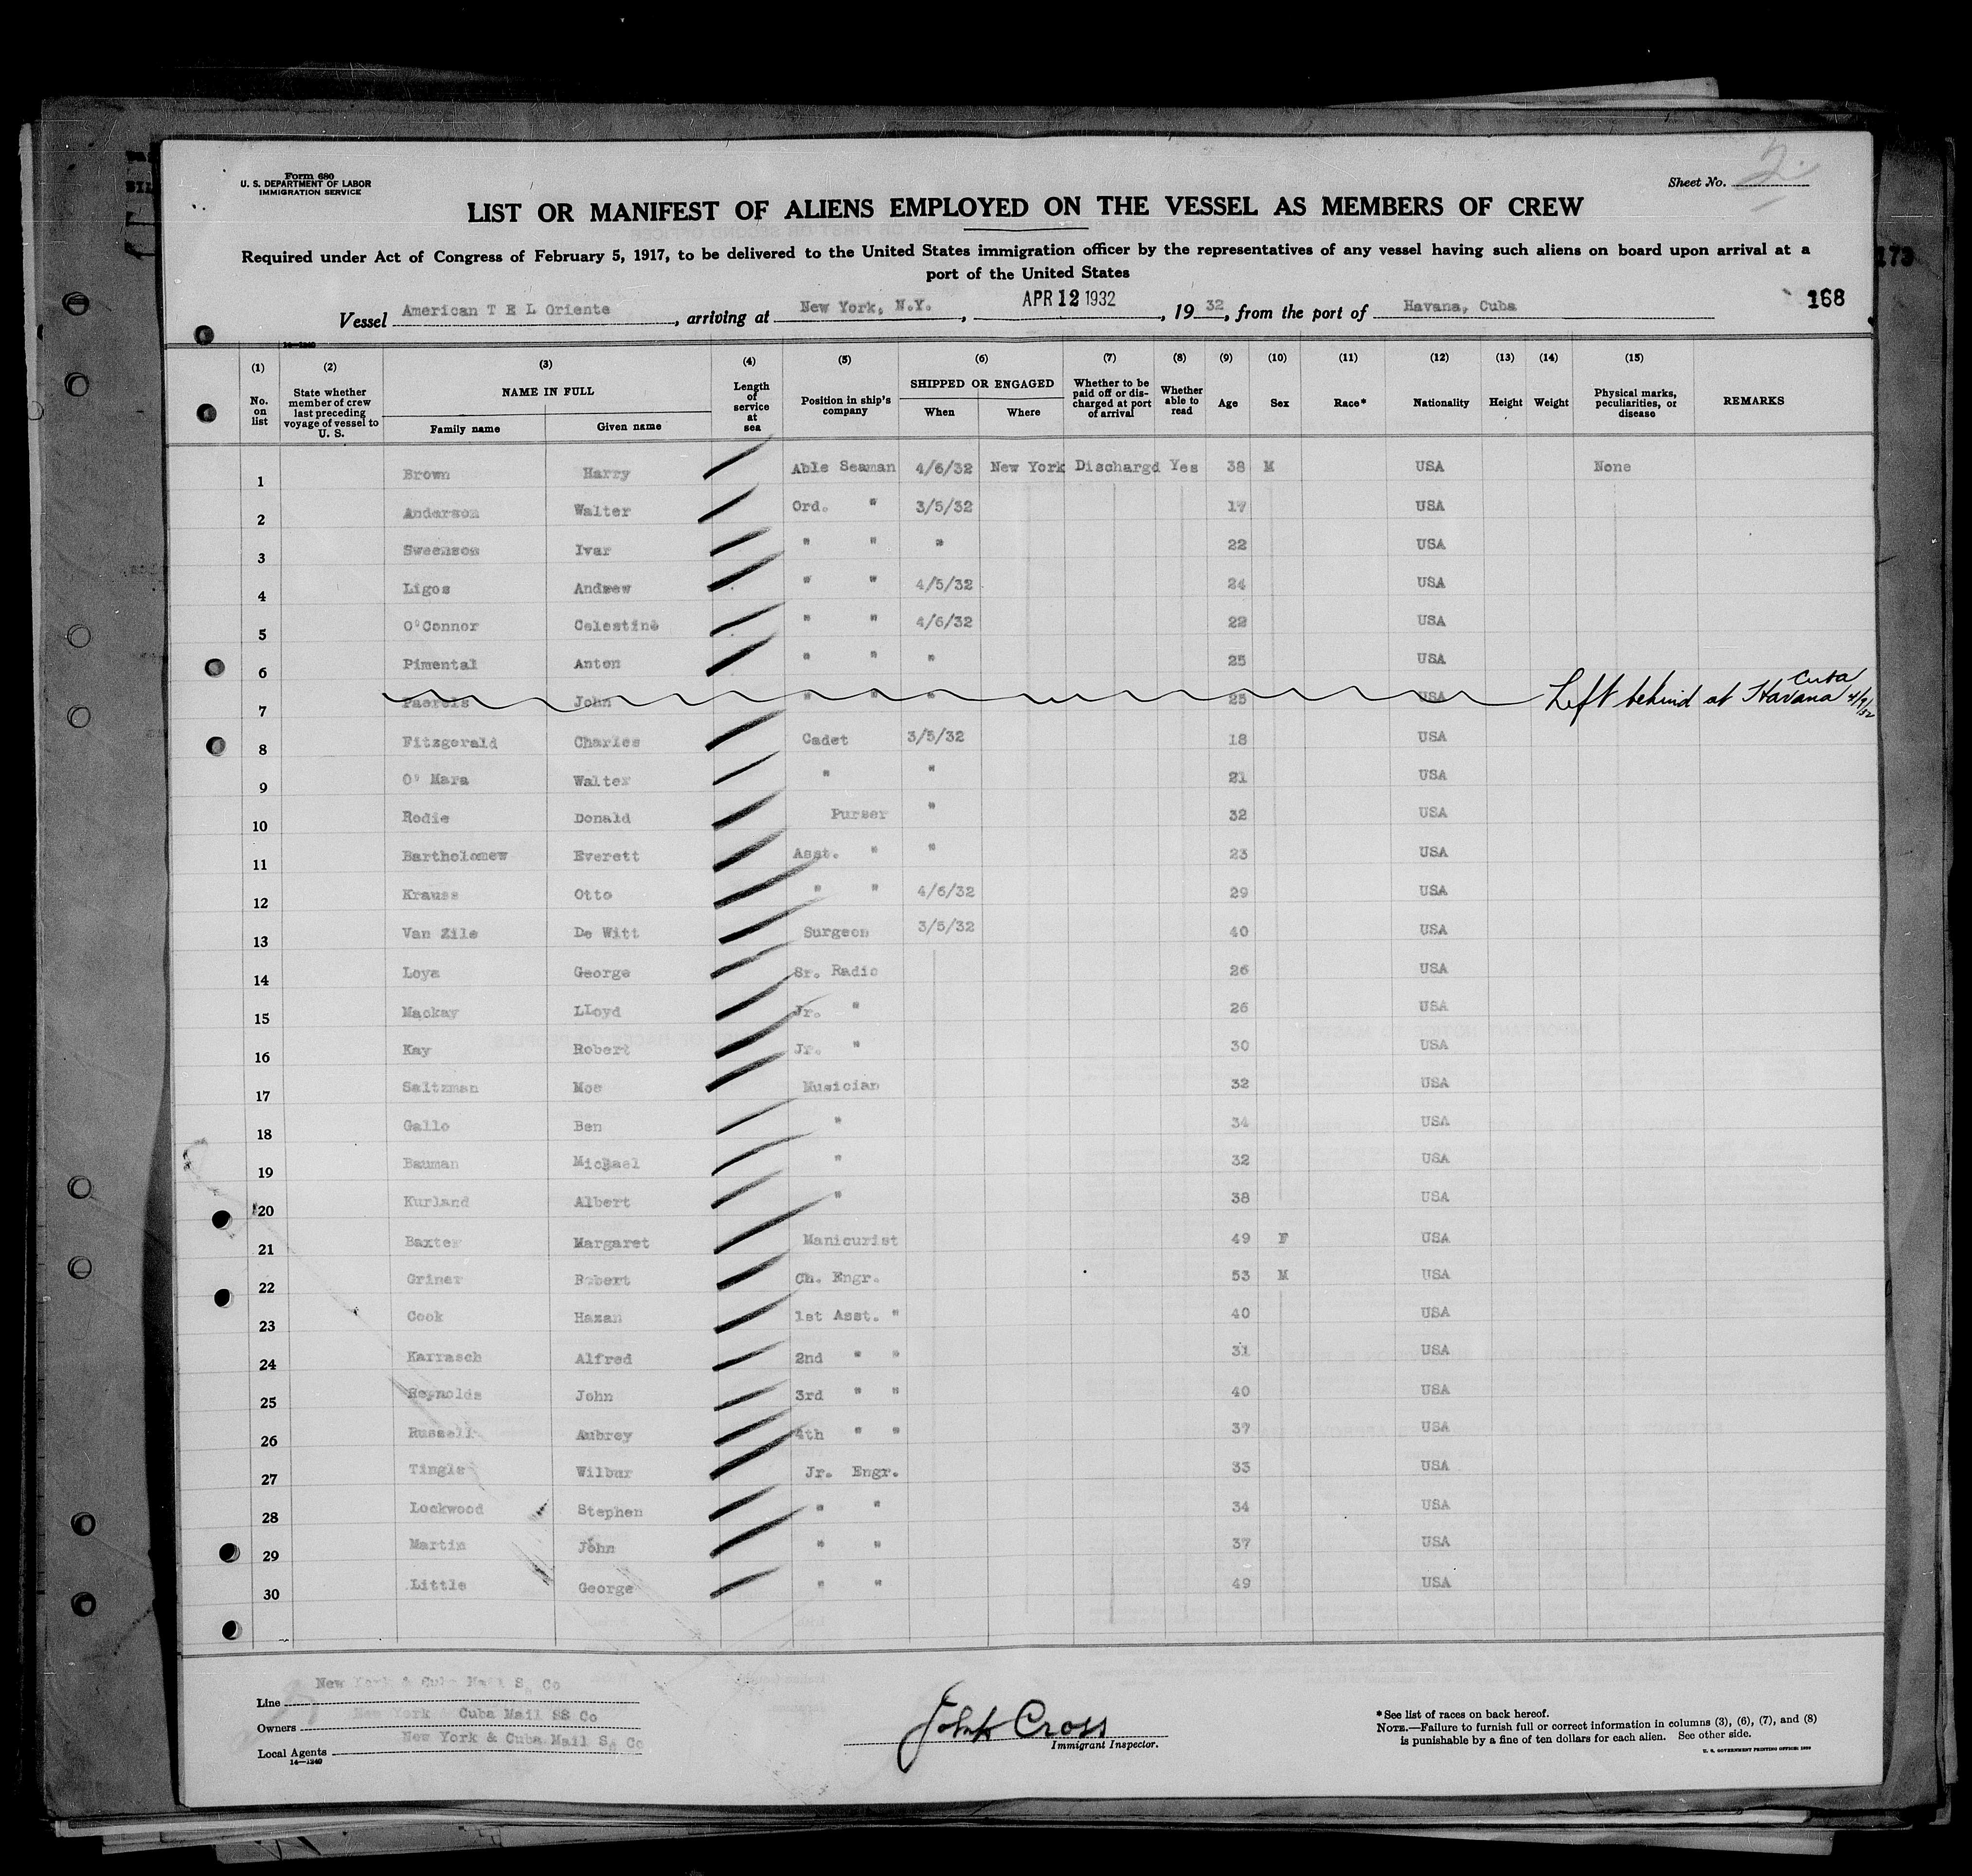 Form 680
U. S. DEPARTMENT OF LABOR
IMMIGRATION SERVICE
Sheet No. 2
LIST OR MANIFEST OF ALIENS EMPLOYED ON THE VESSEL AS MEMBERS OF CREW
Required under Act of Congress of February 5, 1917, to be delivered to the United States immigration officer by the representatives of any vessel having such aliens on board upon arrival at a
port of the United States
173
Vessel American T E L Oriente, arriving at New York, N.Y., APR 12 1932, 1932, from the port of Havana, Cuba
168
14—1240
(1) (2) (3) (4) (5) (6) (7) (8) (9) (10) (11) (12) (13) (14) (15)
No. on list
State whether member of crew last preceding voyage of vessel to U. S.
NAME IN FULL
Family name Given name
Length of service at sea
Position in ship's company
SHIPPED OR ENGAGED
When Where
Whether to be paid off or discharged at port of arrival
Whether able to read
Age Sex Race* Nationality Height Weight
Physical marks, peculiarities, or disease
REMARKS
1 Brown Harry Able Seaman 4/6/32 New York Dischargd Yes 38 M USA None
2 Anderson Walter Ord. " 3/5/32 17 USA
3 Sweenson Ivar " " " 22 USA
4 Ligos Andrew " " 4/5/32 24 USA
5 O'Connor Celestine " " 4/6/32 22 USA
6 Pimental Anton " " " 25 USA
7 John " " " 25 USA Left behind at Havana Cuba 4/9/32
8 Fitzgerald Charles Cadet 3/5/32 18 USA
9 O' Mara Walter " " 21 USA
10 Rodie Donald Purser " 32 USA
11 Bartholomew Everett Asst. " " 23 USA
12 Krauss Otto " " 4/6/32 29 USA
13 Van Zile De Witt Surgeon 3/5/32 40 USA
14 Loya George Sr. Radio 26 USA
15 Mackay LLoyd Jr. " 26 USA
16 Kay Robert Jr. " 30 USA
17 Saltzman Moe Musician 32 USA
18 Gallo Ben " 34 USA
19 Bauman Michael " 32 USA
20 Kurland Albert " 38 USA
21 Baxter Margaret Manicurist 49 F USA
22 Griner Robert Ch. Engr. 53 M USA
23 Cook Hazan 1st Asst. " 40 USA
24 Karrasch Alfred 2nd " " 31 USA
25 Reynolds John 3rd " " 40 USA
26 Russell Aubrey 4th " " 37 USA
27 Tingle Wilbur Jr. Engr. 33 USA
28 Lockwood Stephen " " 34 USA
29 Martin John " " 37 USA
30 Little George " " 49 USA
Line New York & Cuba Mail S. Co
Owners New York Cuba Mail SS Co
Local Agents New York & Cuba Mail SS Co
14—1240
John Cross
Immigrant Inspector.
*See list of races on back hereof.
NOTE.—Failure to furnish full or correct information in columns (3), (6), (7), and (8)
is punishable by a fine of ten dollars for each alien. See other side.
U. S. GOVERNMENT PRINTING OFFICE